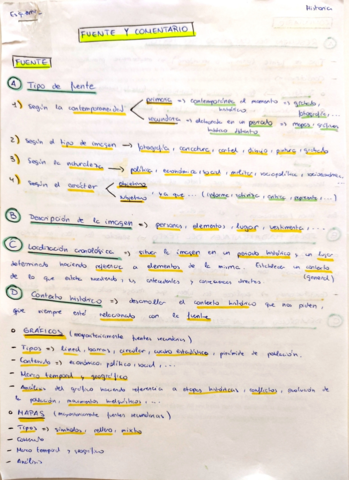 Esquema
Historia
FUENTE Y COMENTARIO
FUENTE
A Tipo de fuente
1) Según la contemporaneidad
primaria => contemporánea al momento => grabado, fotografía, ...
histórico
secundaria => elaborada en un periodo => mapas, gráficos
histórico distinto
2) Según el tipo de imagen => fotografía, caricatura, cartel, dibujo, pintura, grabado
3) Según la naturaleza => política, económica, social, militar, sociopolítica, socioeconómica...
4) Según el carácter
objetivo
subjetivo
ya que ... (informa,
B Descripción de la imagen => personas, elementos, lugar, vestimenta, ...
C Localización cronológica => situar la imagen en un periodo histórico, y un lugar
determinado haciendo referencia a elementos de la misma. Establecer un contexto
de lo que estaba sucediendo, sus antecedentes y consecuencias directas (general)
D Contexto histórico => desarrollar el contexto histórico que nos piden,
que siempre está relacionado con la fuente
o GRÁFICOS (mayoritariamente fuentes secundarias)
- Tipos => lineal, barras, circular, cuadro estadístico, pirámide de población.
- Contenido => económico, político, social, ...
- Marco temporal y geográfico
- Análisis del gráfico haciendo referencia a etapas históricas, conflictos, evolución de
la población,
o MAPAS (mayoritariamente fuentes secundarias)
- Tipos => símbolos, mixto
- Contenido
- Marco temporal y geográfico
- Análisis